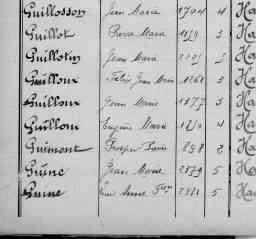 Guillosson Jean Marie 1704 4 Ha
Guillot Pierre Marie 3 Ha
Guillotin Jean Marie 3 Ha
Guilloux Jean Marie 1268 3 Ha
Guilloux Jean Marie 1877 3 Ha
Guilloux Eugène Marie 4 Ha
Guimont Prosper 898 2 Ha
Guine Jean Marie 2879 5 Ha
Guine 5 Ha